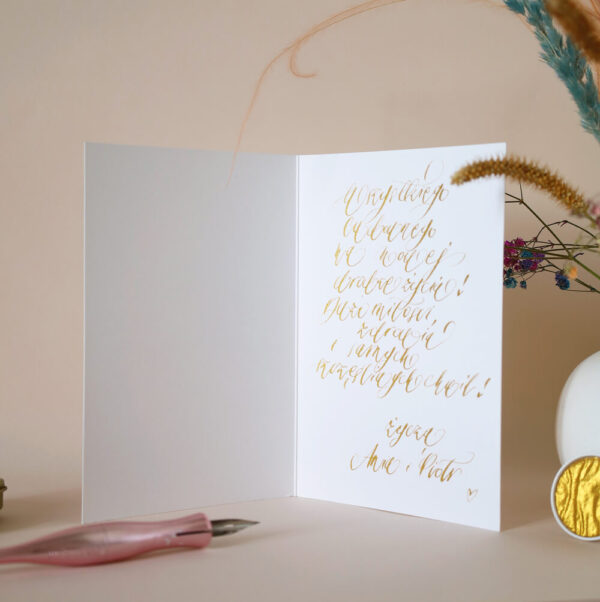 Wszystkiego
cudownego
na nowej
drodze życia!
Dużo miłości,
zdrowia
i samych
szczęśliwych chwil!
życzą
Anna i Piotr